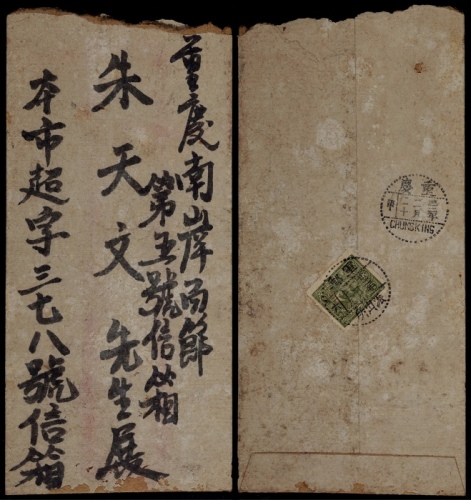 重慶南岸南節
第五號信箱
朱天文先生展
本市超字三七八號信箱
重慶
CHUNGKING